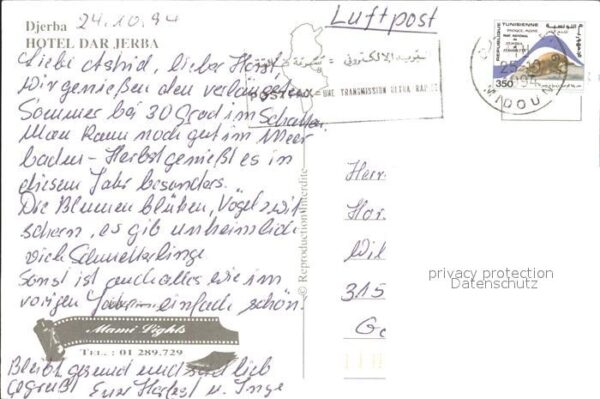 Djerba 24.10.94
HOTEL DAR JERBA
Luftpost
Liebe Astrid, lieber Horst,
Wir genießen den verlängerten
Sommer bei 30 Grad im Schatten.
Man kann noch gut im Meer
baden - Herbst genießt es in
diesem Jahr besonders.
Die Blumen blühen, Vögel zwit
schern, es gib unheimlich
viele Schmetterlinge
Sonst ist auch alles wie im
vorigen Jahr einfach schön!
Mami Lights
TEL.: 01 289.729
Bleibt gesund und seid lieb
gegrüßt Eure u. Inge
© Reproduction Interdite
البريد الإلكتروني
POSTFAX = UNE TRANSMISSION ULTRA RAPIDE
REPUBLIQUE TUNISIENNE
350
25
1994
MIDOUN
Her
Hor
Wil
315
Ge
privacy protection
Datenschutz